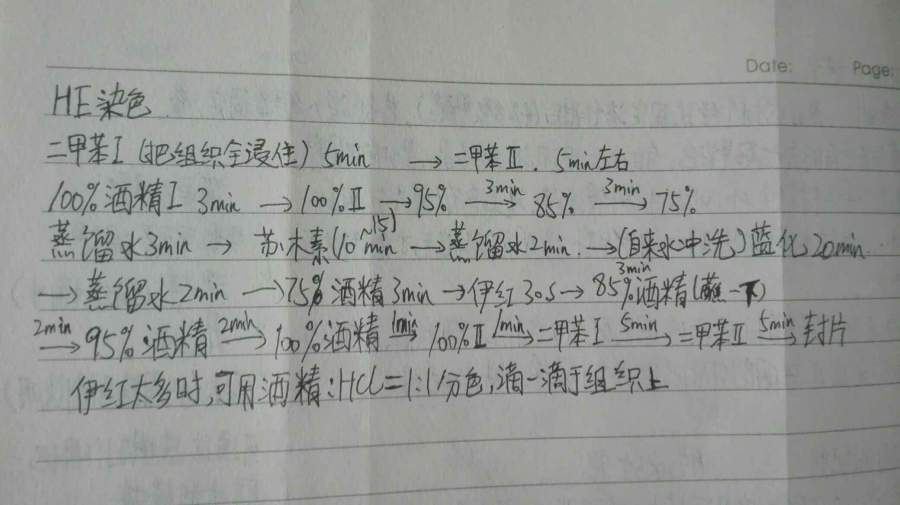 Date: Page:
HE染色
二甲苯I (把组织全浸住) 5min → 二甲苯II. 5min左右
100%酒精I 3min → 100%II → 95% 3min→ 85% 3min→ 75%
蒸馏水3min → 苏木素(10~15)min → 蒸馏水2min. → (自来水冲洗)蓝化20min.
→ 蒸馏水2min → 75%酒精3min → 伊红30s → 85%酒精(蘸一下) 3min
2min→ 95%酒精 2min→ 100%酒精 1min→ 100%II 1min→ 二甲苯I 5min→ 二甲苯II 5min→ 封片
伊红太多时,可用酒精:HCl=1:1分色,滴一滴于组织上